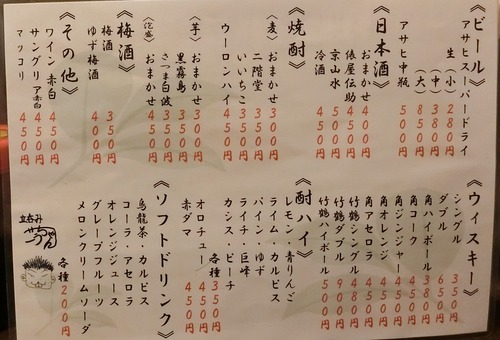 《ビール》
アサヒスーパードライ
生（小）280円
（中）380円
（大）850円
アサヒ中瓶 500円
《日本酒》
おまかせ 400円
俵屋伝助 450円
京山水 500円
冷酒 450円
《焼酎》
〈麦〉おまかせ 300円
二階堂 350円
いいちこ 350円
ウーロンハイ 450円
〈芋〉おまかせ 300円
黒霧島 350円
さつま白波 350円
〈泡盛〉おまかせ 450円
《梅酒》
梅酒 350円
ゆず梅酒 400円
《その他》
ワイン 赤白 450円
サングリア 赤白 450円
マッコリ 450円
《ウィスキー》
シングル 350円
ダブル 650円
角ハイボール 380円
角コーク 450円
角ジンジャー 450円
角オレンジ 450円
角アセロラ 450円
竹鶴シングル 480円
竹鶴ダブル 980円
竹鶴ハイボール 500円
《酎ハイ》
レモン・青りんご
ライム・カルピス
パイン・ゆず
ライチ・巨峰
カシス・ピーチ
各種 350円
オロチュー 450円
赤ダマ 450円
《ソフトドリンク》
烏龍茶・カルピス
コーラ・アセロラ
オレンジジュース
グレープフルーツ
メロンクリームソーダ
各種 200円
立呑み